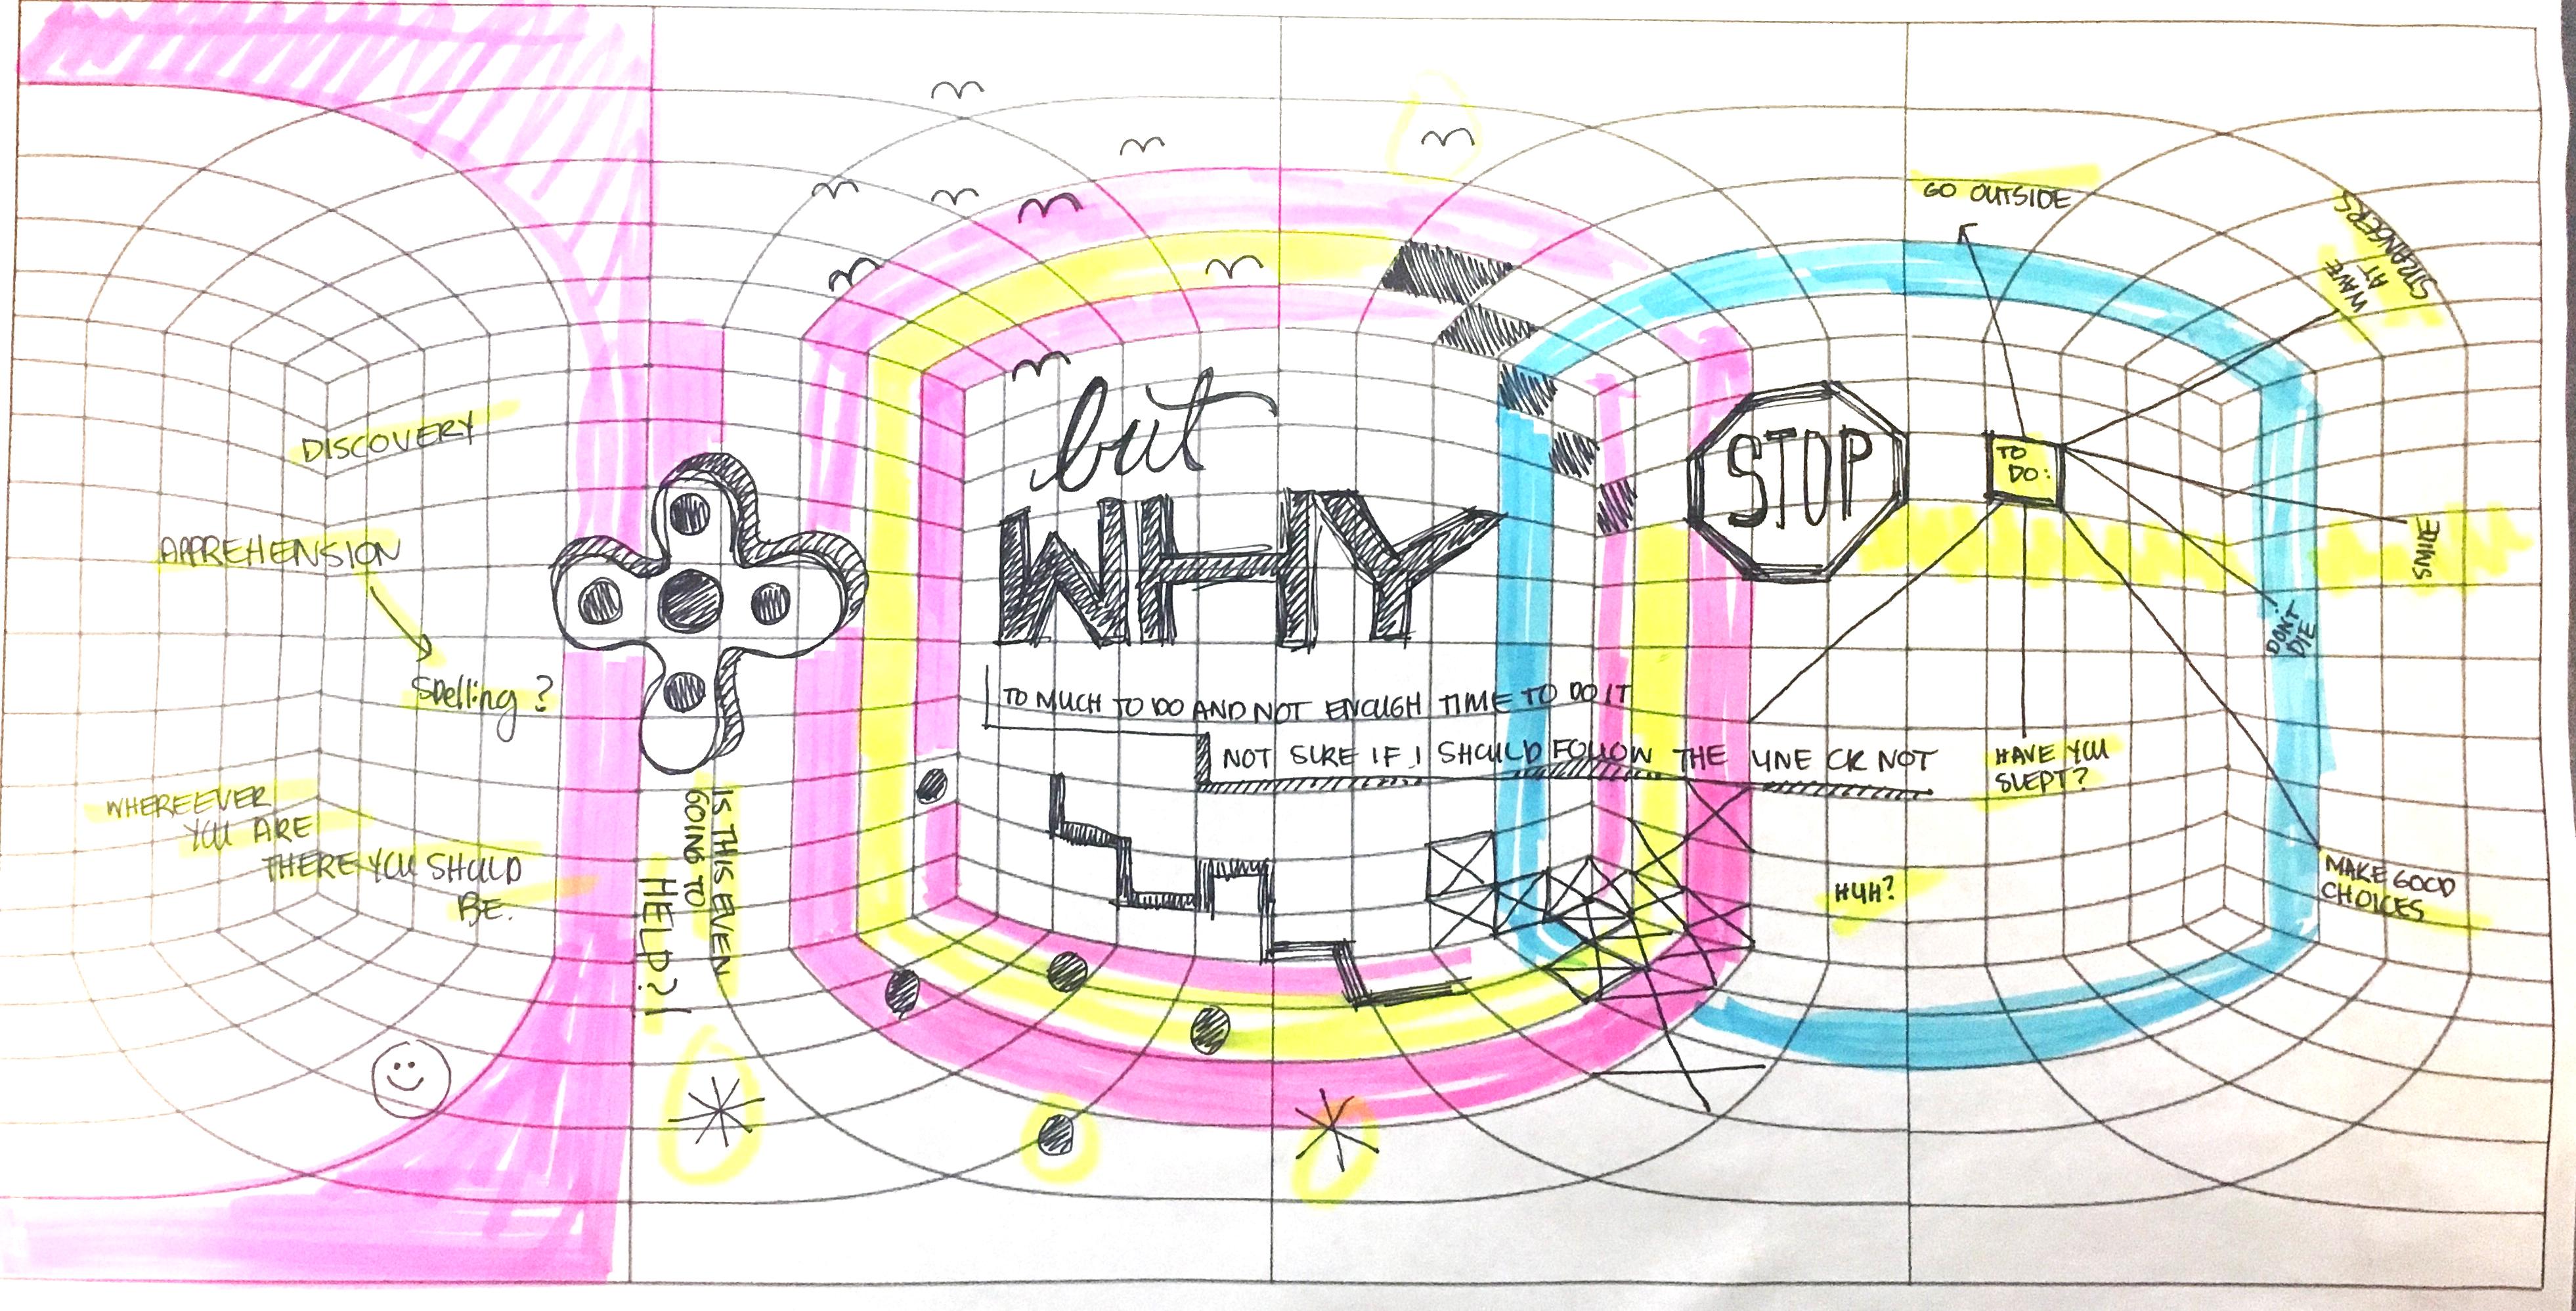 DISCOVERY
APPREHENSION
Spelling?
WHEREEVER
YOU ARE
THERE YOU SHOULD
BE.
IS THIS EVEN
GOING TO
HELP?!
but
WHY
TO MUCH TO DO AND NOT ENOUGH TIME TO DO IT
NOT SURE IF I SHOULD FOLLOW THE LINE OR NOT
STOP
TO
DO:
GO OUTSIDE
WAVE
AT
STRANGERS
SMILE
DON'T
DIE
MAKE GOOD
CHOICES
HAVE YOU
SLEPT?
HUH?